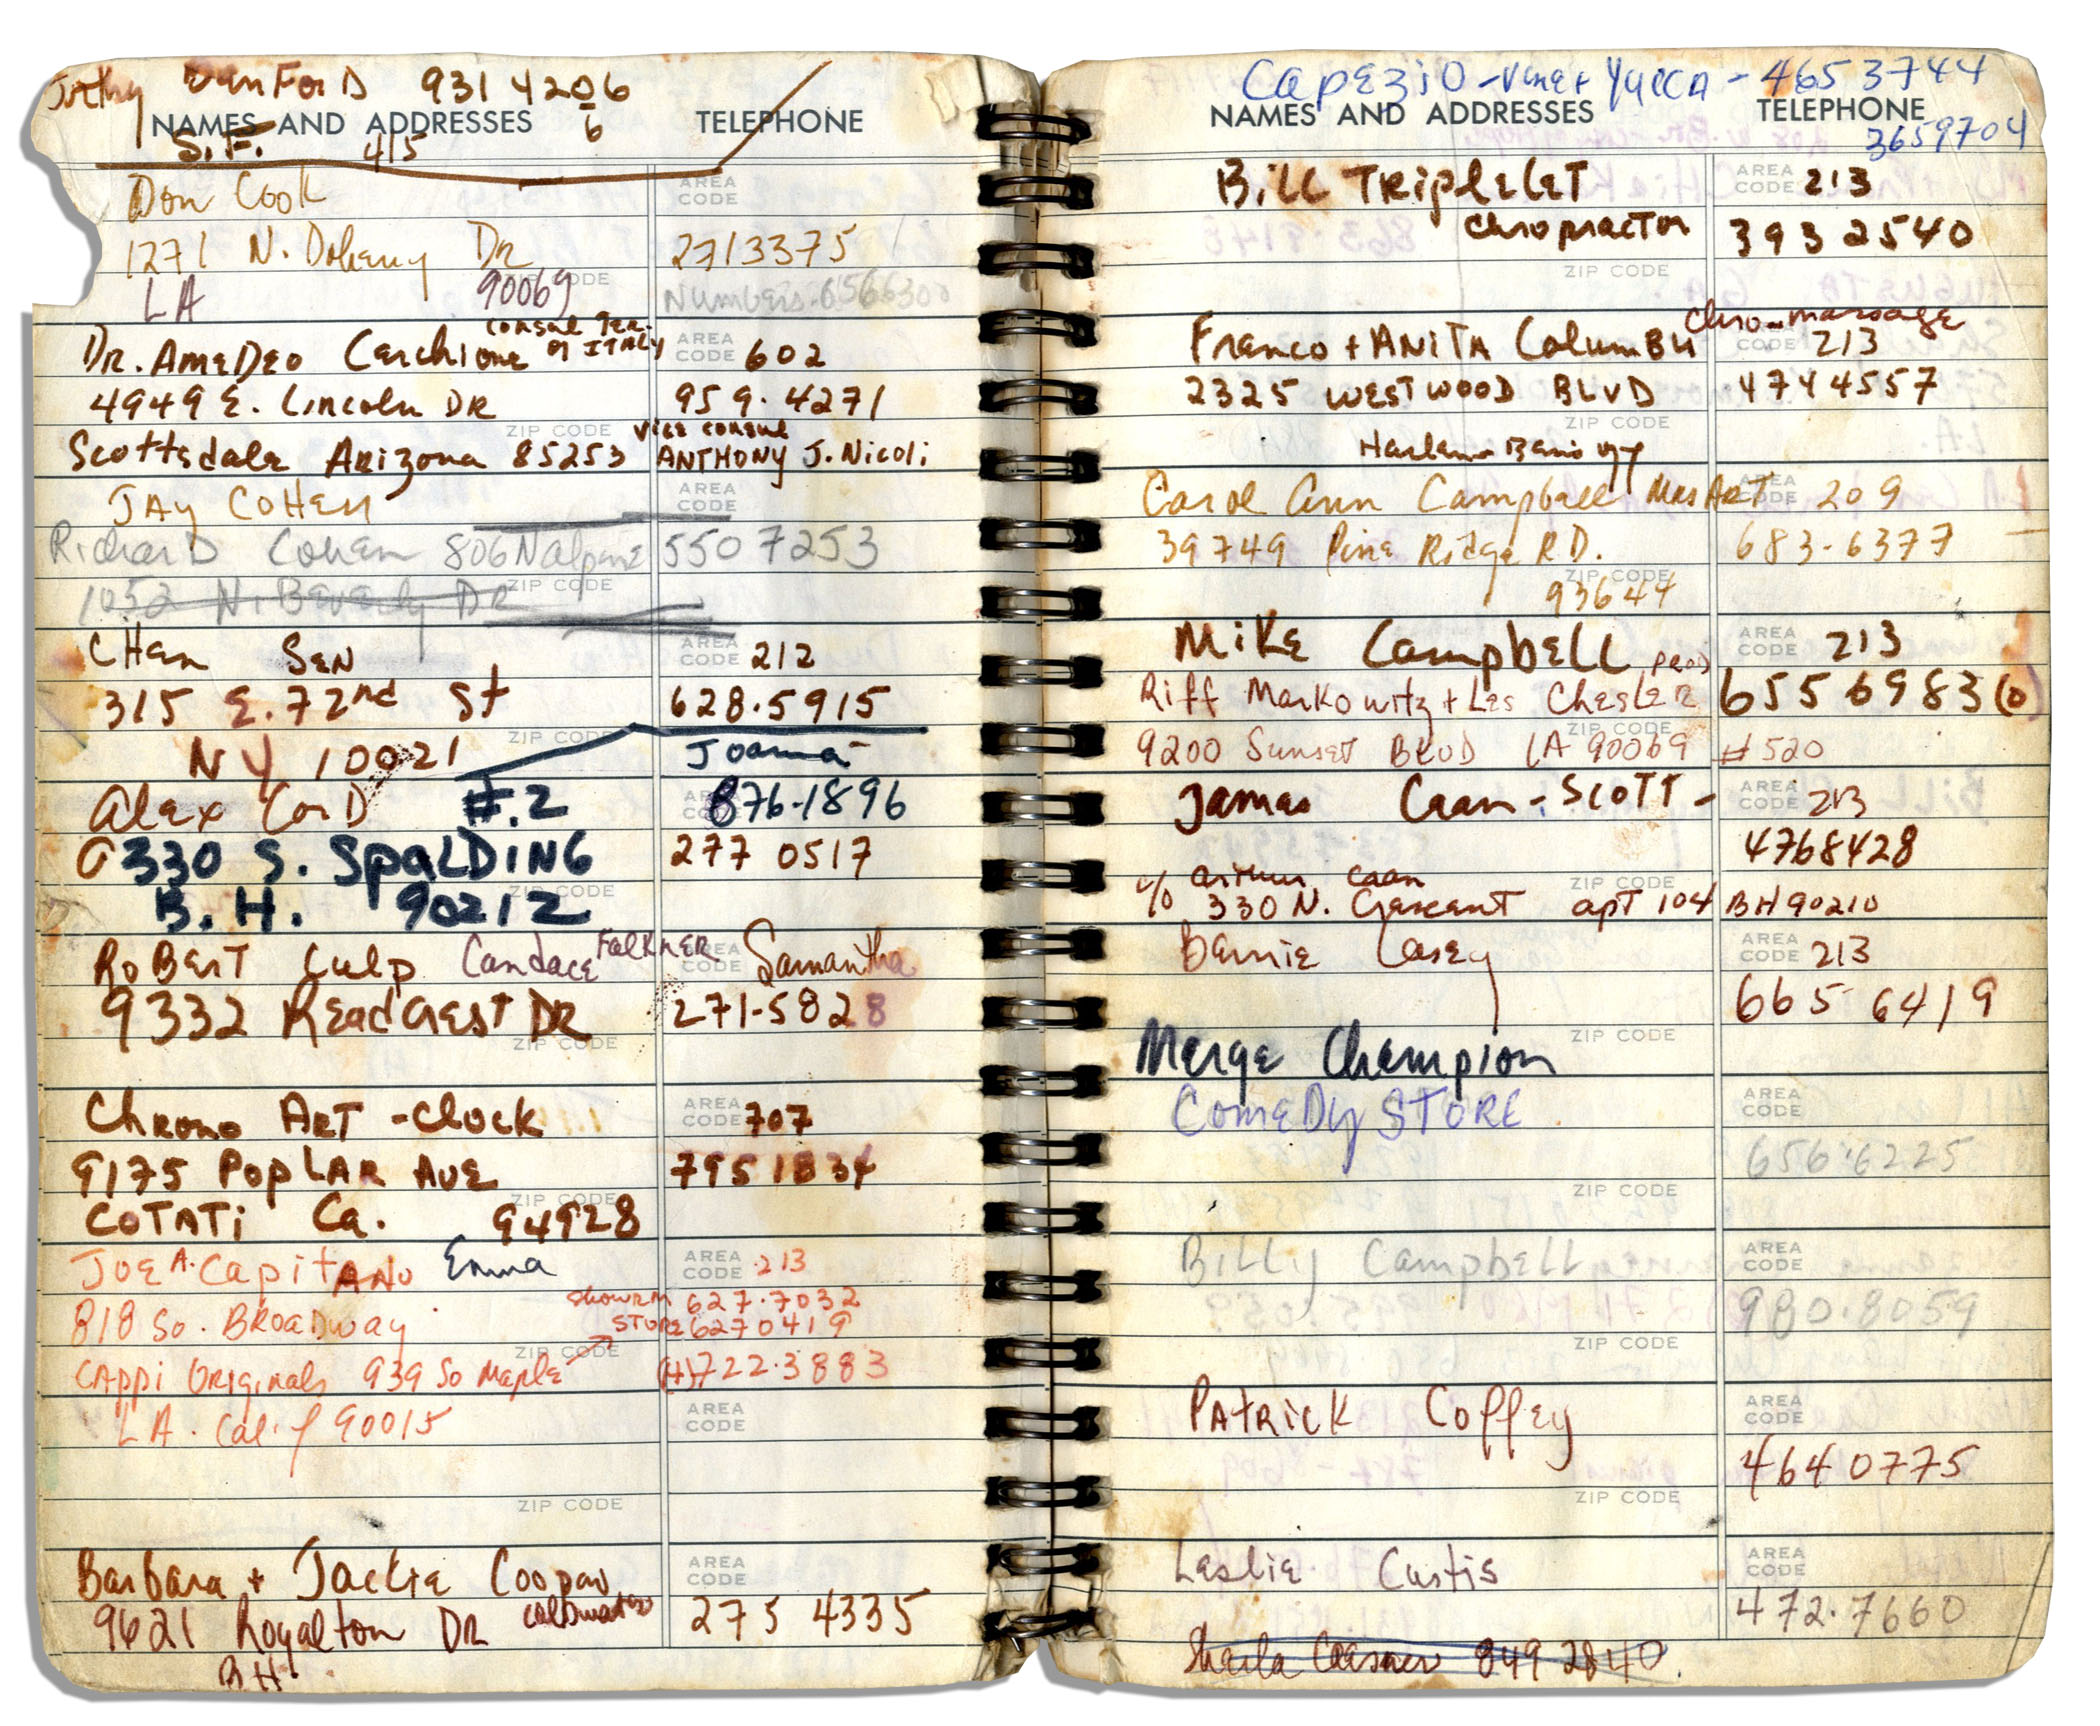 DanForD 931 4206
6
NAMES AND ADDRESSES TELEPHONE
S.F. 415
Don Cook AREA CODE
1271 N. Doheny DR 2713375
LA 90069 ZIP CODE Numbers. 6566300
consul ger. of ITALY
DR. AmeDeo Cerchione AREA CODE 602
4949 E. Lincoln DR 959.4271
ZIP CODE vice consul
Scottsdale Arizona 85253 ANTHONY J. Nicoli
JAy CoHen AREA CODE
RicharD Cohen 806 N alpine 550 7253
1052 N. Beverly DR ZIP CODE
CHen SeN AREA CODE 212
315 E. 72nd St 628.5915
NY 10021 ZIP CODE Joanna
alex CorD #.2 AREA CODE 876-1896
330 S. SpaLDiNG 277 0517
B. H. 90212 ZIP CODE
RoBerT Culp Candace FalkNER AREA CODE Samantha
9332 Readcrest DR 271-5828
ZIP CODE
Chrono ART - Clock AREA CODE 707
9175 PopLAR AVE 795 1834
ZIP CODE
COTATi Ca. 94928
JoE A. CapitANo Emma AREA CODE 213
showrm 627.7032
818 So. BRoaDway STORE 627 0419
ZIP CODE
CAppi Originals 939 So Maple (H) 722.3883
LA. Calif 90015 AREA CODE
ZIP CODE
Barbara + Jackie Cooper AREA CODE
9621 Royalton DR coldwater 275 4335
B H.
Capezio - Vine + Yucca - 465 3744
NAMES AND ADDRESSES TELEPHONE
3659704
BiLL TRipleLeT AREA CODE 213
Chiropractor 393 2540
ZIP CODE
Chiro-massage
Franco + ANiTA Columbu AREA CODE 213
2325 WESTWOOD BLVD 474 4557
ZIP CODE
Carol Ann Campbell Mrs ART AREA CODE 209
39749 Pine Ridge RD. 683-6377
ZIP CODE
93644
Mike CampbeLL PROD AREA CODE 213
Riff Markowitz + Les Chester 655 6983 (o)
ZIP CODE
9200 Sunset BLVD LA 90069 #520
James Caan - Scott - AREA CODE 213
4768428
c/o arthur caan ZIP CODE
330 N. Crescent apT 104 BH 90210
Bernie Casey AREA CODE 213
665 6419
ZIP CODE
Marge Champion
ComeDy STORE AREA CODE
656.6225
ZIP CODE
BiLLy CampbeLL AREA CODE
980.8059
ZIP CODE
PATRick Coffey AREA CODE
464 0775
ZIP CODE
Leslie Curtis AREA CODE
472.7660
849 2840